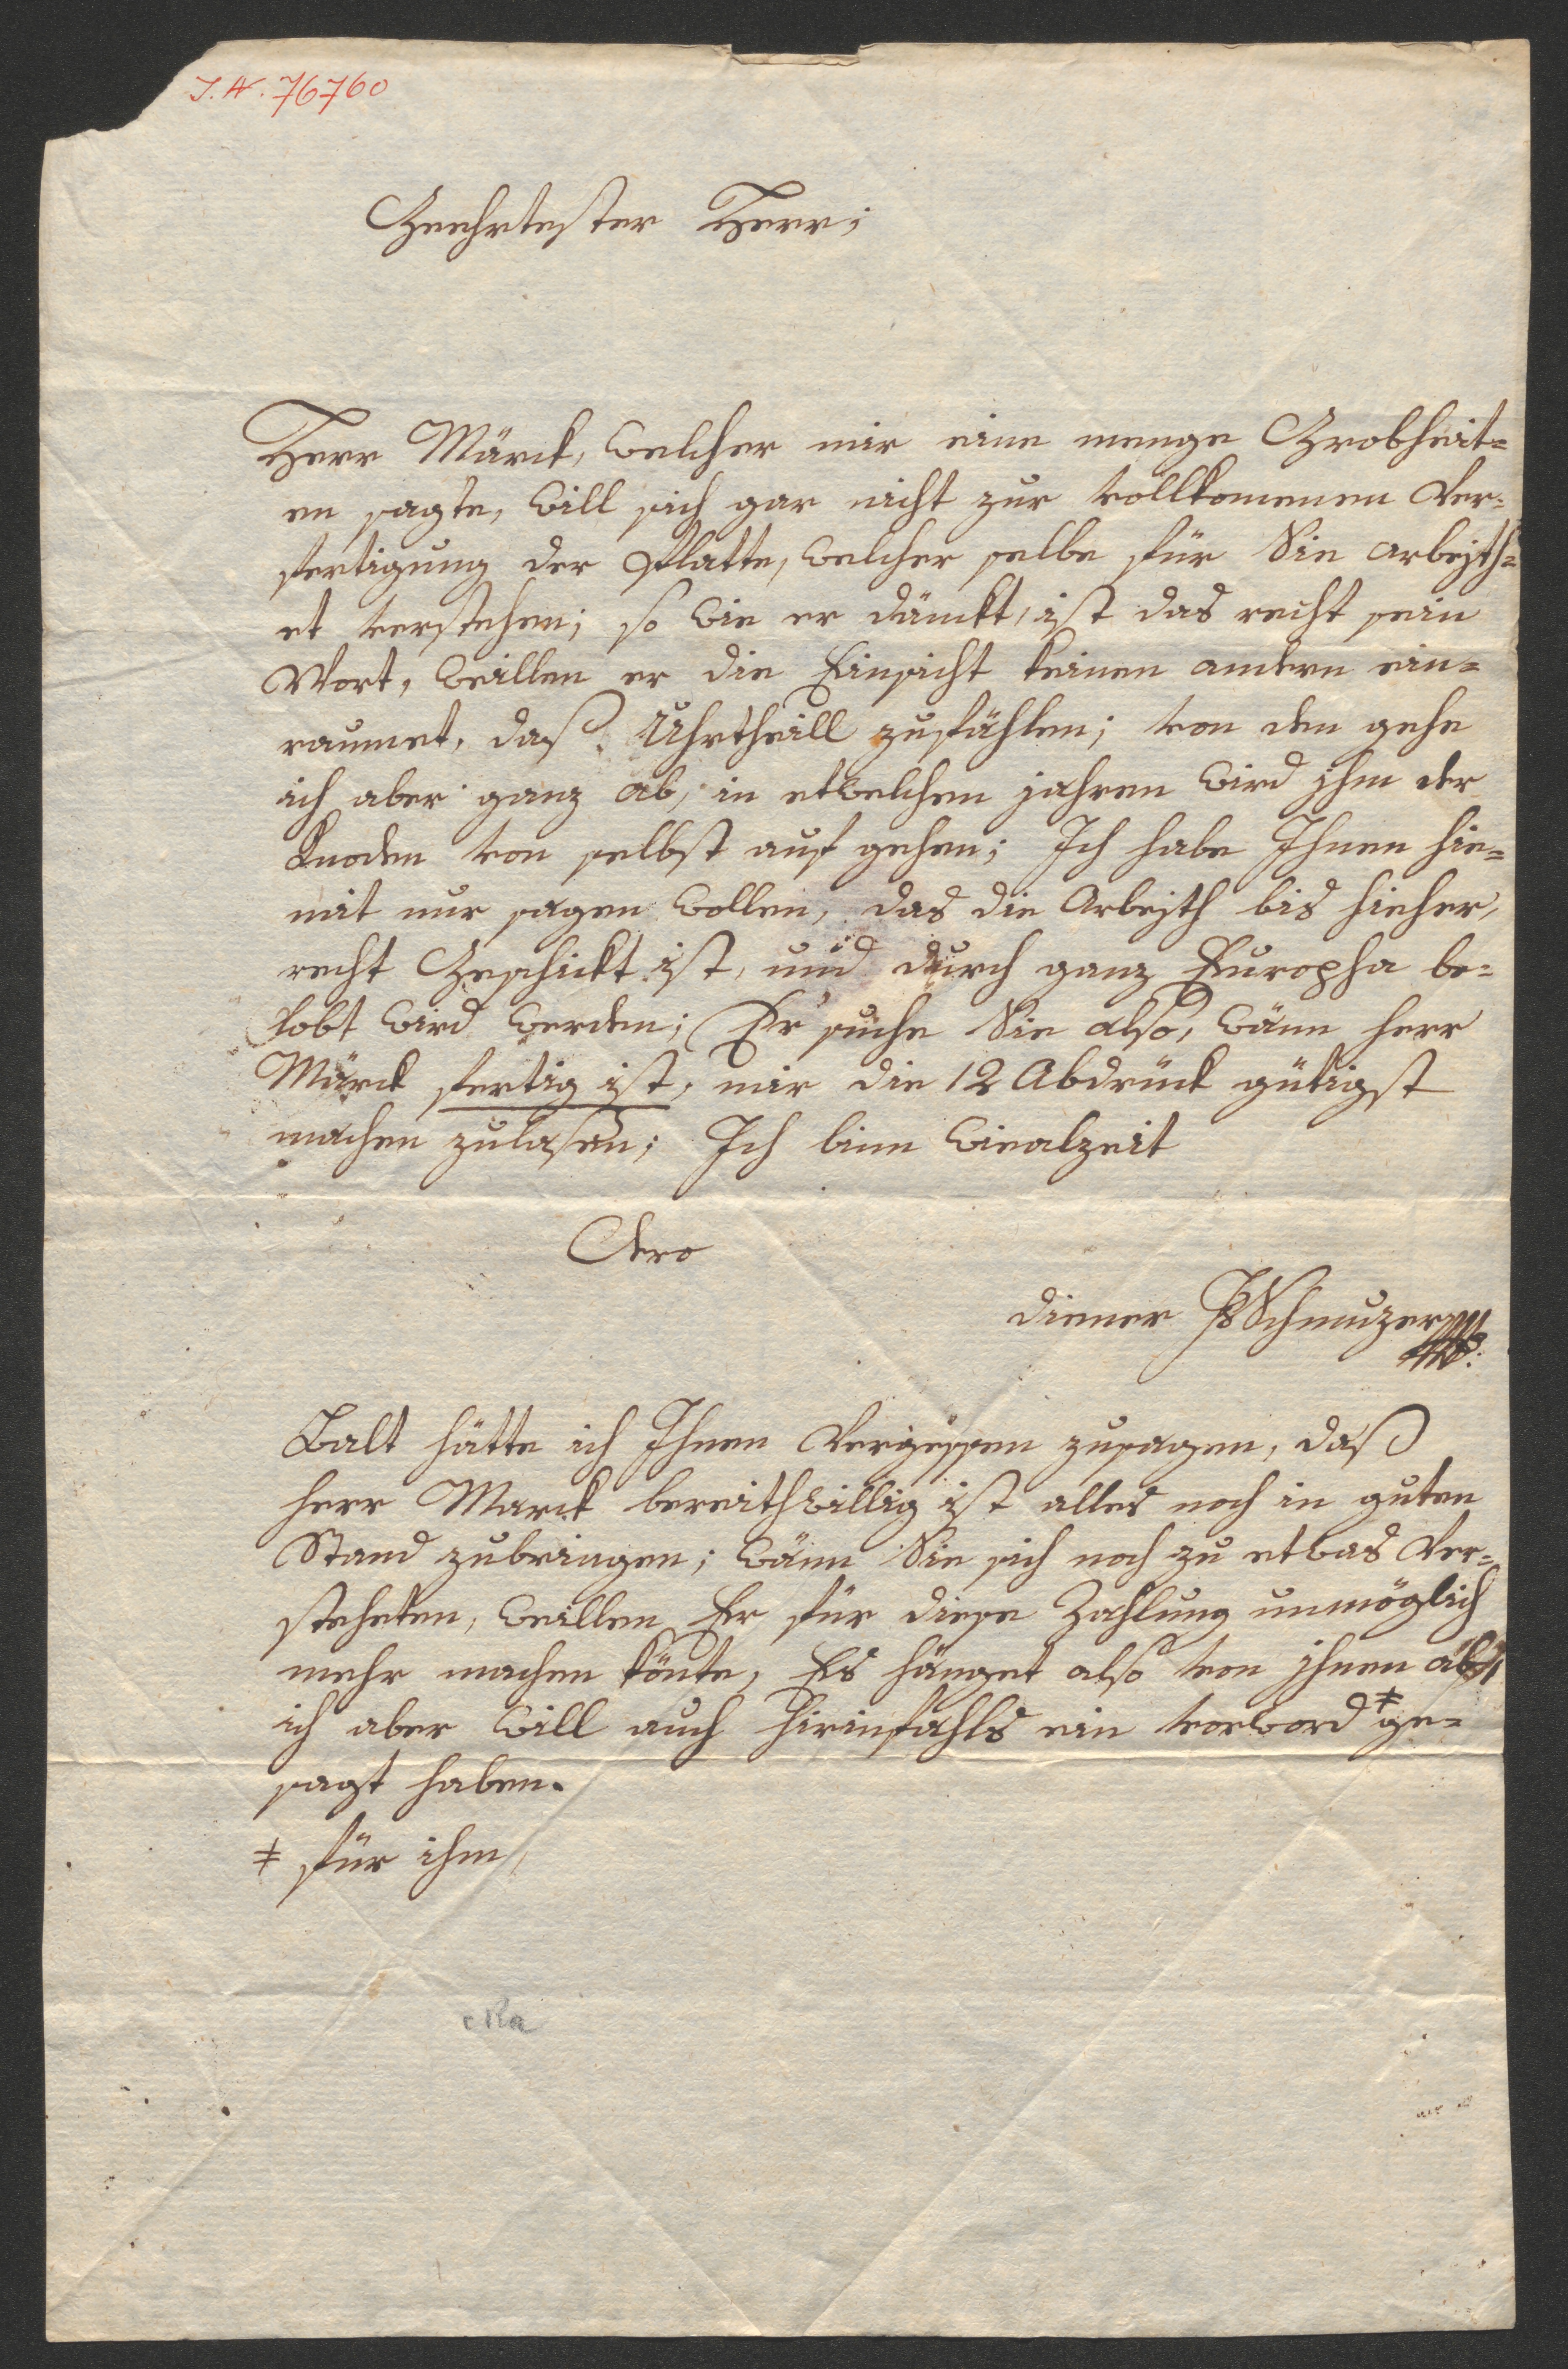 I. N. 76760
Geehrtester Herr;
Herr Märck, welcher mir eine menge Grobheit=
en sagte, will sich gar nicht zur vollkomenen Ver=
fertigung der Platte, welcher selbe für Sie arbeyth=
et verstehen; so wie er dänckt, ist das recht sein
Wort, weillen er die Einsicht keinen andern ein=
raumet, daß Uhrtheill zufählen; von den gehe
ich aber ganz ab, in etwelchen jahren wird jhm der
Knoden von selbst auf gehen; Ich habe Ihnen hie=
mit nur sagen wollen, das die Arbeyth bis hieher,
recht Geschickt ist, und durch ganz Europha be=
lobt wird werden; Er suche Sie also, wänn herr
Märck fertig ist, mir die 12 Abdrück gütigst
machen zulasen; Ich binn wiealzeit
Dero
diener JSchmuzer
Balt hätte ich Ihnen Vergessen zusagen, daß
herr Marck bereithwillig ist alles noch in guten
Stand zubringen; wänn Sie sich noch zu etwas Ver=
steheten, weillen Er für diese Zahlung unmöglich
mehr machen könte, Es hänget also von jhnen ab,
ich aber will auch hierinfahls ein vorword ‡ ge=
sagt haben.
‡ für ihm,